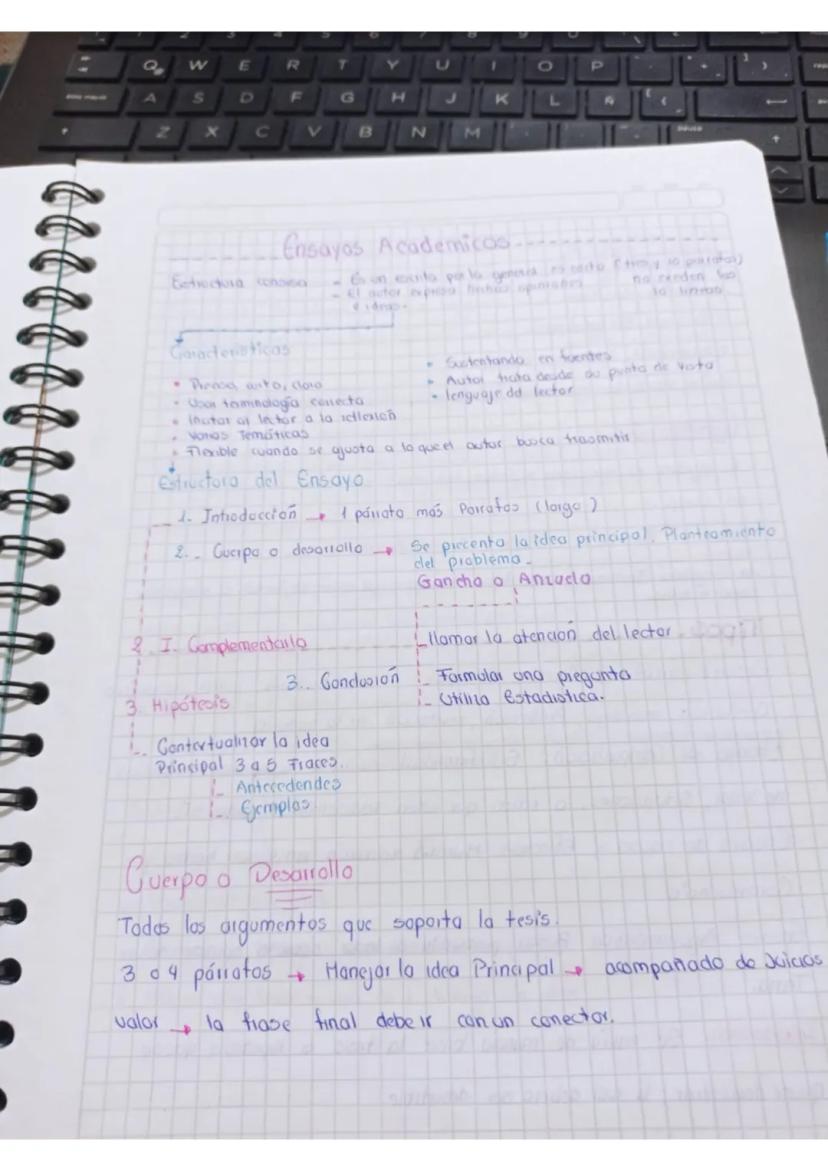 Q W E R T Y U I O P
A S D F G H J K L Ñ
Z X C V B N M
Ensayos Academicos
Estructura concisa - Es un escrito por lo general es corto
- El autor expresa opiniones no exeden las
e ideas. 10 lineas
Caracteristicas
• Precisa, corto, claro
• Usar terminología correcta
• Invitar al lector a la reflexión
• Varias Temáticas
• Flexible cuando se ajusta a lo que el autor busca trasmitir
• Sustentando en fuentes
• Autor trata desde su punto de vista
• lenguaje del lector
Estructura del Ensayo
1.- Introducción → 1 párrafo más Parrafos (largo)
2.- Cuerpo o desarrollo → Se precenta la idea principal. Planteamiento
del problema.
Gancho o Anzuelo
llamar la atención del lector
Formular una pregunta
Utiliza Estadistica.
2 I. Complementarla
3.. Conclusión
3 Hipótesis
Contextualizar la idea
Principal 3 a 5 Fraces.
Antecedendes
Ejemplos
Cuerpo o Desarrollo
Todos los argumentos que soporta la tesis.
3 o 4 párrafos → Manejar la idea Principal → acompañado de Juicios
valor → la frase final debe ir con un conector.